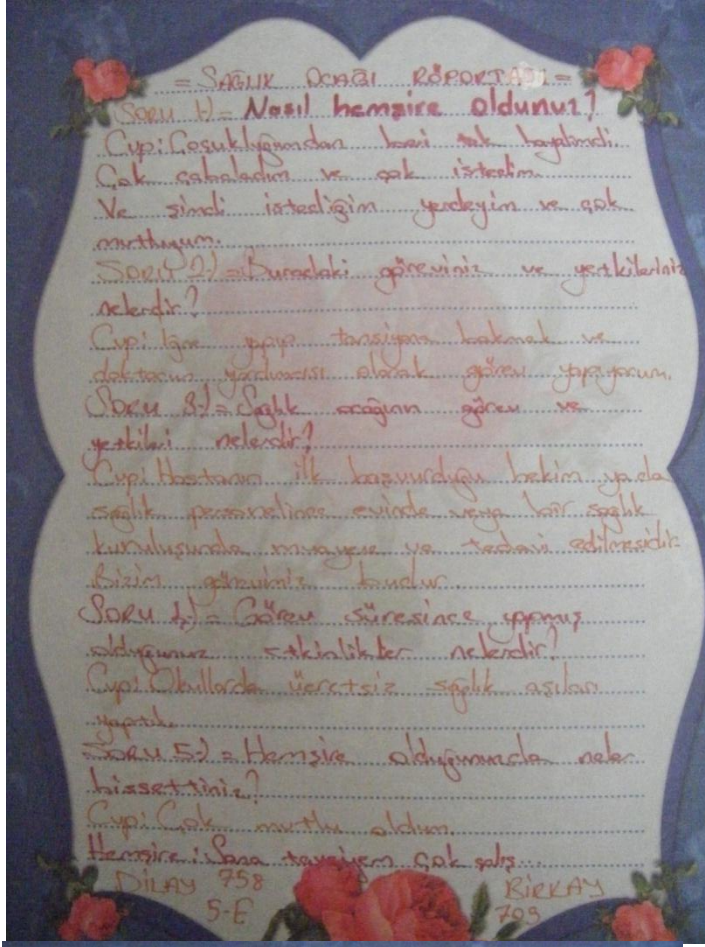 = SAĞLIK OCAĞI RÖPORTAJI =
SORU 1-) = Nasıl hemşire oldunuz?
Cvp: Çocukluğumdan beri tek hayalimdi.
Çok çabaladım ve çok istedim.
Ve şimdi istediğim yerdeyim ve çok
mutluyum.
SORU 2-) = Buradaki göreviniz ve yetkileriniz
nelerdir?
Cvp: İğne yapıp tansiyona bakmak ve
doktorun yardımcısı olarak görev yapıyorum.
SORU 3-) = Sağlık ocağının görev ve
yetkileri nelerdir?
Cvp: Hastanın ilk başvurduğu hekim ya da
sağlık personelince evinde veya bir sağlık
kuruluşunda muayene ve tedavi edilmesidir.
Bizim görevimiz budur.
SORU 4-) = Görev süresince yapmış
olduğunuz etkinlikler nelerdir?
Cvp: Okullarda ücretsiz sağlık aşıları
yaptık.
SORU 5-) = Hemşire olduğunuzda neler
hissettiniz?
Cvp: Çok mutlu oldum.
Hemşire: Sana tavsiyem çok çalış...
DİLAY 758 BİRKAY
5-E 709